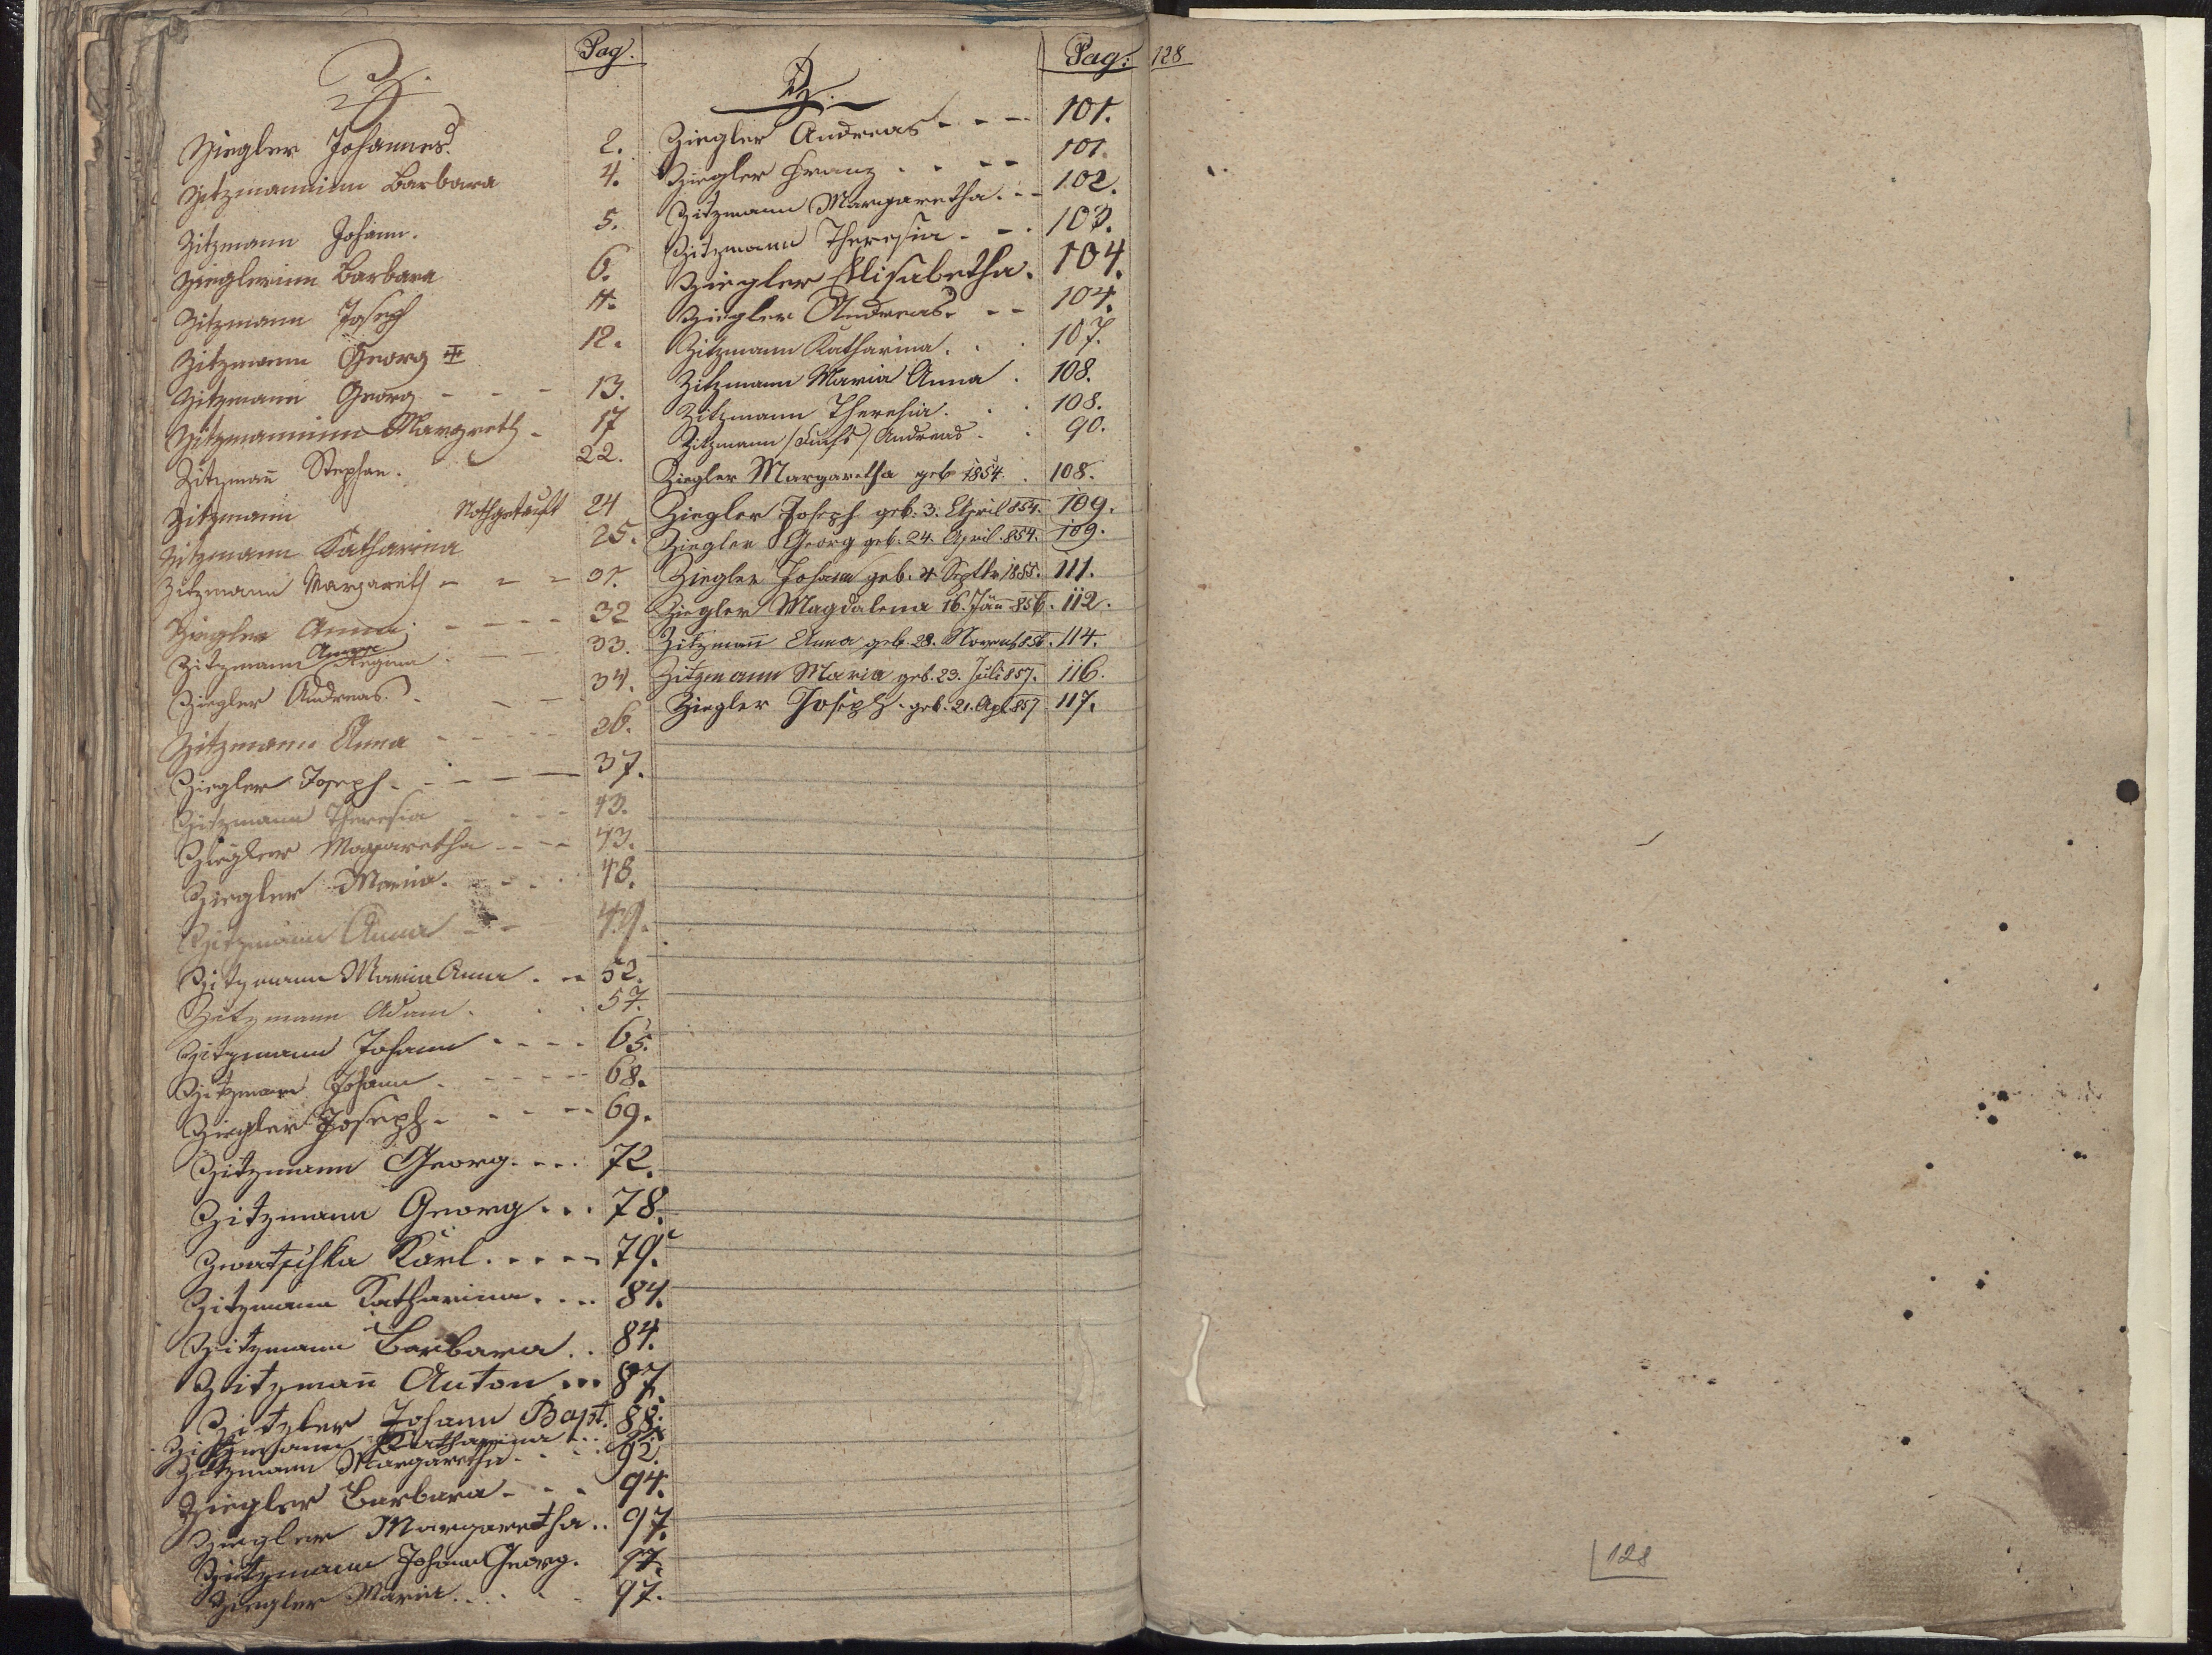 Z.
Pag.
Ziegler Johannes. 2.
Zitzmaninn Barbara 4.
Zitzmann Johann. 5.
Zieglerinn Barbara 6.
Zitzmann Joseph 11.
Zitzmann Georg 12.
Zitzmann Georg - - - 13.
Zitzmaninn Margreth - 17
Zitzman̄ Stephan. 22.
Zitzmann Nothgetauft 24
Zitzmann Katharina 25.
Zitzmann Margareth - - - 31.
Ziegler Anna - - - - 32
Zitzmann Regina - - 33.
Ziegler Andreas. - - 34.
Zitzmann Anna - - - - - 36.
Ziegler Joseph - - - - 37.
Zitzmann Theresia - - - - 43.
Ziegler Magaretha - - - - 43.
Ziegler Maria. - - . 48.
Zitzmann Anna - - 49.
Zitzmann Maria Anna . - - 52.
Zitzmann Adam. . . 57.
Zitzmann Johann - - - - 65.
Zitzmann Johann. - - - - 68.
Ziegler Joseph. - - - - 69.
Zitzmann Georg. - - . 72.
Zitzmann Georg . . . 78.
Zwatschka Karl. . - - - 79.
Zitzmann Katharina. . . . 84.
Zitzmann Barbara . . 84.
Zitzman̄ Anton . . . 87.
Zitzler Johann Bapt. 88.
Zitzmann Katharina . .
Zitzmann Margaretha - . . 92.
Ziegler Barbara - - . 94.
Ziegler Margaretha . . 97.
Zitzmann Johann Georg. 97.
Ziegler Maria. . . . . 97.
Z.
Pag:
Ziegler Andreas. - - - 101.
Ziegler Franz . . - - 101.
Zitzmann Margaretha. - - 102.
Zitzmann Theresia - - . 103.
Ziegler Elisabetha. 104.
Ziegler Andreas. - - 104.
Zitzmann Katharina. . . 107.
Zitzmann Maria Anna . 108.
Zitzmann Theresia. . . 108.
Zitzmann /Fuchs/ Andreas. . 90.
Ziegler Margaretha geb 1854. . 108.
Ziegler Joseph geb. 3. April 854. 109.
Ziegler Georg geb. 24. April. 854. 109.
Ziegler Johann geb. 4 Septbr 1855. 111.
Ziegler Magdalena 16. Jän̄ 856. 112.
Zitzman̄ Anna geb. 28. Novemb 856. 114.
Zitzmann Maria geb. 23. Juli 857. 116.
Ziegler Joseph. geb. 21. Apl 857 117.
128
128